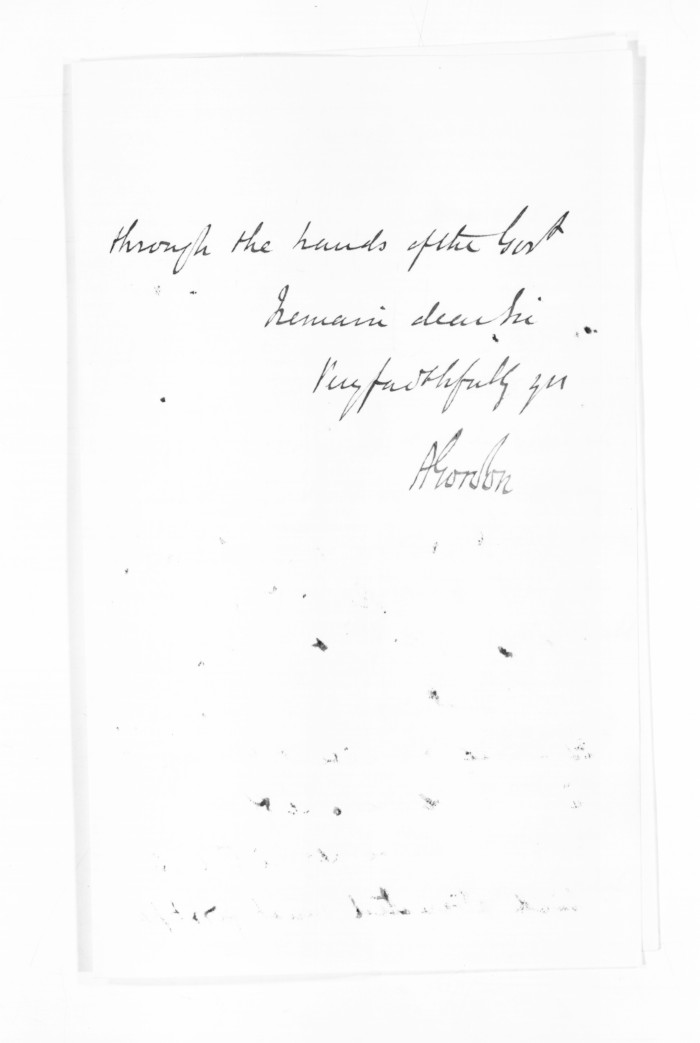 through the hands of the Govt
I remain dear Sir
Very faithfully yrs
A Gordon